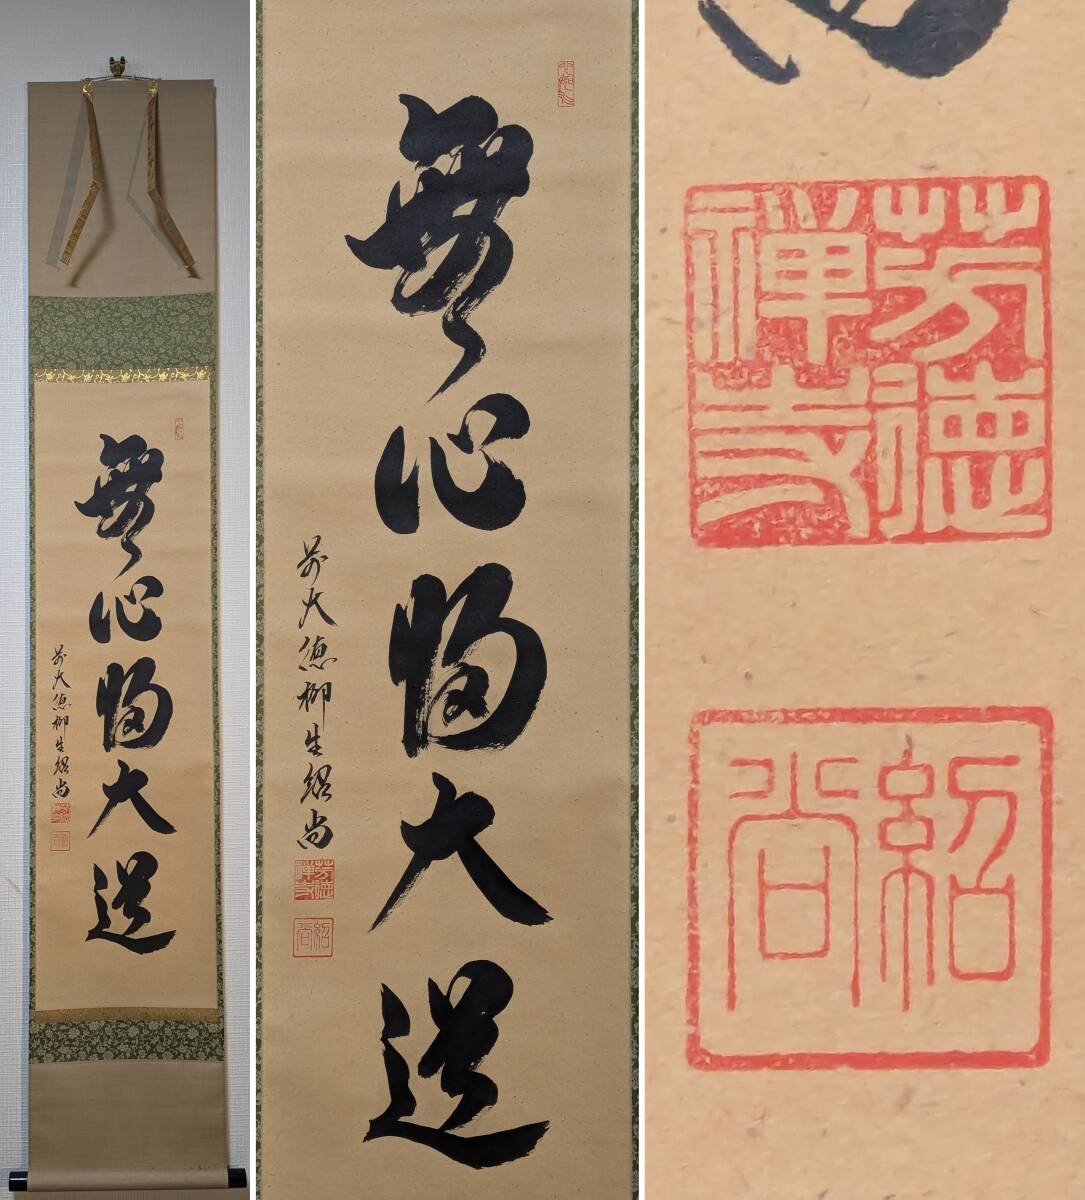 無心帰大道
前大徳柳生紹尚
無心帰大道
前大徳柳生紹尚
芳徳禅寺
紹尚
芳徳
禅寺
紹尚